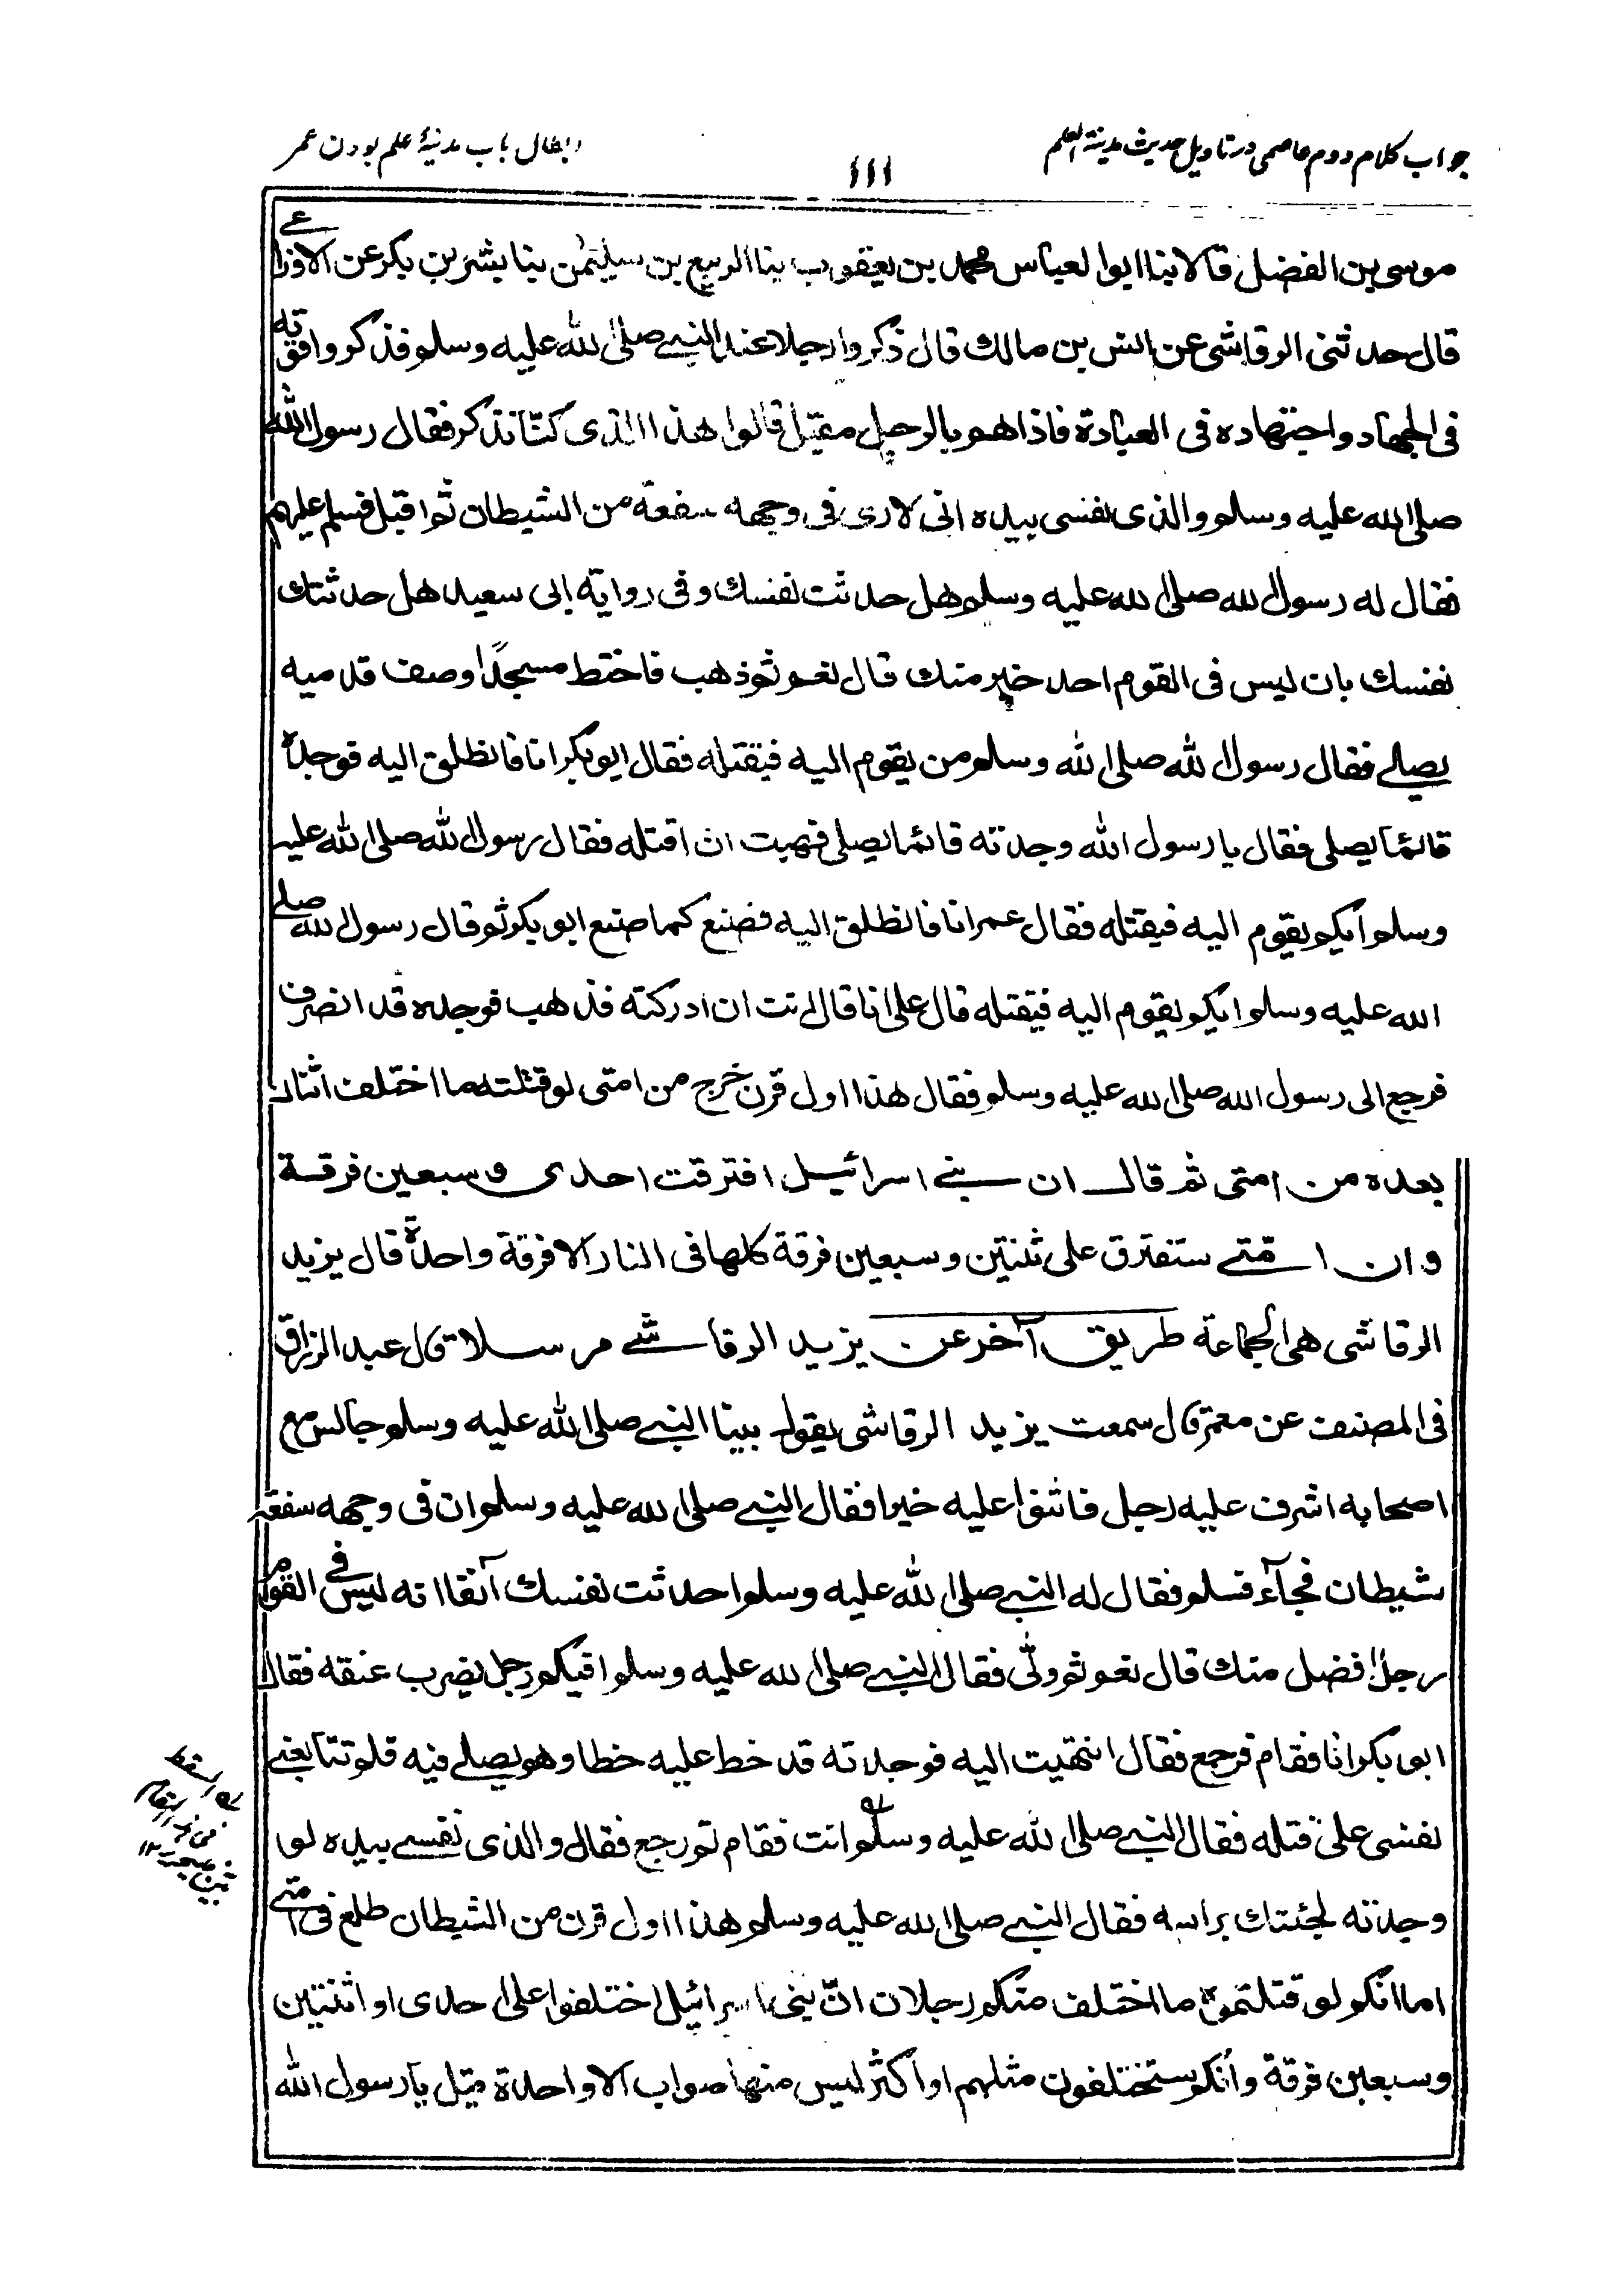 جواب کلام دوم عاصمی در تاویل حدیث مدینة العلم
۱۱۱
ابطال باب مدینۂ علم بودن عمر
موسی بن الفضل قالا بنا ابوالعباس محمد بن یعقوب بنا الربیع بن سلیمن بنا بشر بن بکر عن الاوزاعی
قال حدثنی الرقاشی عن انس بن مالك قال ذکروا رجلا عند النبی صلی الله علیه وسلم فذکروا قوته
فی الجهاد واجتهاده فی العبادة فاذاهم بالرجل مقبل قالوا هذا الذی کنّا نذکر فقال رسول الله
صلی الله علیه وسلم والذی نفسی بیده انی لاری فی وجهه سفعة من الشیطان ثم اقبل فسلم علیهم
فقال له رسول الله صلی الله علیه وسلم هل حدثت نفسك وفی روایة ابی سعید هل حدثتك
نفسك بان لیس فی القوم احد خیر منك قال نعم ثم ذهب فاختط مسجدًا وصف قدمیه
یصلی فقال رسول الله صلی الله وسلم من یقوم الیه فیقتله فقال ابوبکر انا فانطلق الیه فوجده
قائما یصلی فقال یا رسول الله وجدته قائما یصلی فهبت ان اقتله فقال رسول الله صلی الله علیه
وسلم ایکم یقوم الیه فیقتله فقال عمر انا فانطلق الیه فصنع کما صنع ابوبکر ثم قال رسول الله صلی
الله علیه وسلم ایکم یقوم الیه فیقتله قال علی انا قال انت ان ادرکته فذهب فوجده قد انصرف
فرجع الی رسول الله صلی الله علیه وسلم فقال هذا اول قرن خرج من امتی لو قتلته ما اختلف اثنان
بعده من امتی ثم قال ان بنی اسرائیل افترقت احدی وسبعین فرقة
وان امتی ستفترق علی ثنتین وسبعین فرقة کلها فی النار الا فرقة واحدة قال یزید
الرقاشی هی الجماعة طریق آخر عن یزید الرقاشی مرسلا قال عبد الرزاق
فی المصنف عن معمر قال سمعت یزید الرقاشی یقول بینا النبی صلی الله علیه وسلم جالس مع
اصحابه اشرف علیه رجل فاثنوا علیه خیرا فقال النبی صلی الله علیه وسلم ان فی وجهه سفعة
شیطان فجآء فسلم فقال له النبی صلی الله علیه وسلم احدثت نفسك آنفا انه لیس فی القوم
رجل افضل منك قال نعم ثم ولّی فقال النبی صلی الله علیه وسلم افیکم رجل یضرب عنقه فقال
ابوبکر انا فقام فرجع فقال انتهیت الیه فوجدته قد خط علیه خطا وهو یصلی فیه فلم تتابعنی
نفسی علی قتله فقال النبی صلی الله علیه وسلم انت فقام ثم رجع فقال والذی نفسی بیده لو
وجدته لجئتك براسه فقال النبی صلی الله علیه وسلم هذا اول قرن من الشیطان طلع فی امتی
اما انکم لو قتلتموه ما اختلف منکم رجلان انّ بنی اسرائیل اختلفوا علی احدی او اثنتین
وسبعین فرقة وانکم ستختلفون مثلهم او اکثر لیس منها صواب الا واحدة قیل یا رسول الله